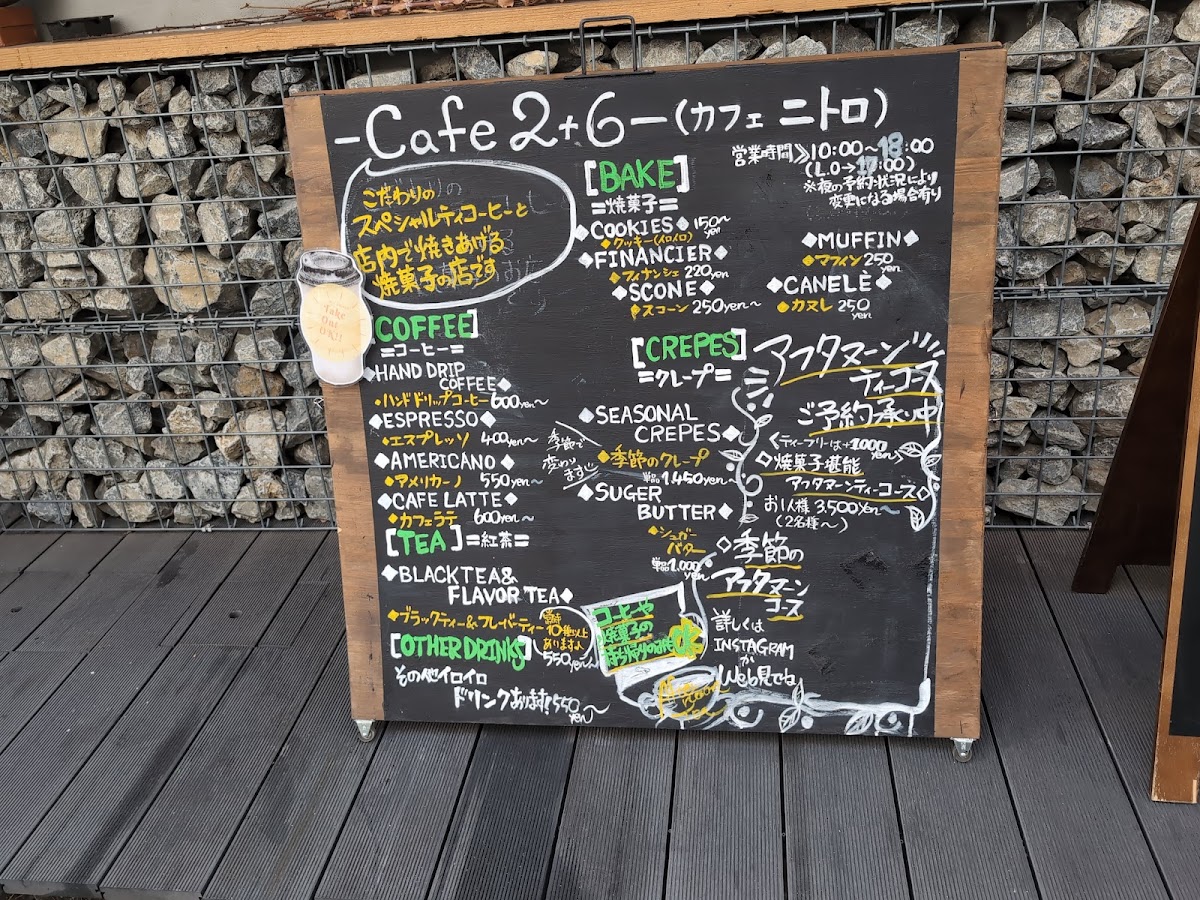 -Cafe 2+6-(カフェ ニトロ)
営業時間≫10:00~18:00
(L.O→17:00)
※夜の予約状況により
変更になる場合有り
こだわりの
スペシャルティコーヒーと
店内で焼きあげる
焼菓子の店です
Take
Out
[BAKE]
=焼菓子=
◆COOKIES◆ 150~
yen
◆クッキー(イロイロ)
◆FINANCIER◆
◆フィナンシェ 220yen
◆SCONE◆
◆スコーン 250yen~
◆MUFFIN◆
◆マフィン 250
yen
◆CANELÈ◆
●カヌレ 250
yen
[COFFEE]
=コーヒー=
◆HAND DRIP
COFFEE◆
・ハンドドリップコーヒー 600yen~
◆ESPRESSO◆
◆エスプレッソ 400yen~
◆AMERICANO◆
◆アメリカーノ 550yen~
◆CAFE LATTE◆
◆カフェラテ 600yen~
[TEA]=紅茶=
◆BLACK TEA&
FLAVOR TEA◆
◆ブラックティー&フレーバーティー
常時
10種以上
あります♪
550yen~
[OTHER DRINKS]
その他イロイロ
ドリンクあります!550
yen~
[CREPES]
=クレープ=
◆SEASONAL
CREPES◆
季節で
変わり
ます
◆季節のクレープ
単品1,450yen~
◆SUGER
BUTTER◆
◆シュガー
バター
単品1,000
yen~
コーヒーや
焼菓子の
OK
アフタヌーン
ティーコース
ご予約承り中
<ティーフリーは+1000yen>
◇焼菓子堪能
アフタヌーンティーコース◇
お1人様 3,500yen~
(2名様~)
◇季節の
アフタヌーン
コース
詳しくは
INSTAGRAM
か
Web見てね